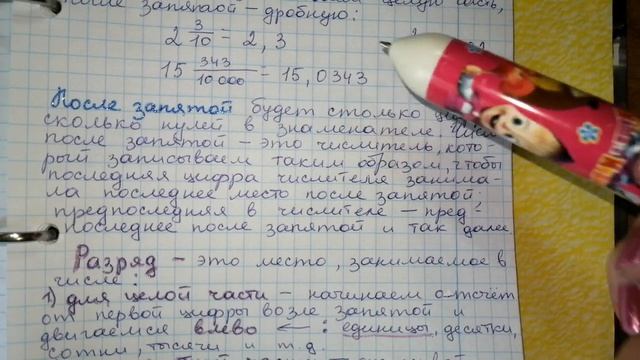 после запятой – дробную:
2 3/10 = 2,3
15 343/10 000 = 15,0343
После запятой будет столько
сколько нулей в знаменателе.
после запятой – это числитель, кото-
рый записываем таким образом, чтобы
последняя цифра числителя занима-
ла последнее место после запятой,
предпоследняя в числителе – пред-
последнее после запятой и так далее
Разряд – это место, занимаемое в
числе:
1) для целой части – начинаем отсчёт
от первой цифры возле запятой и
двигаемся влево ← : единицы, десятки,
сотни, тысячи и т.д.